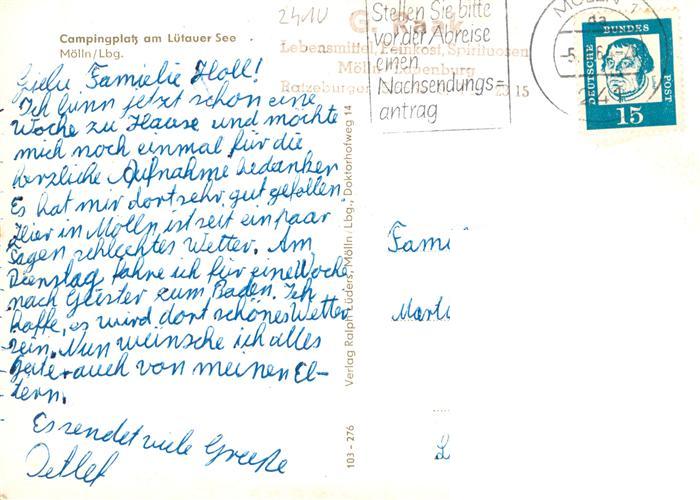 2410
Campingplatz am Lütauer See
Mölln/Lbg.
Lebensmittel, Feinkost, Spirituosen
Ratzeburger
15
Stellen Sie bitte
vor der Abreise
einen
Nachsendungs=
antrag
MÖLLN
DEUTSCHE BUNDES POST
15
Liebe Familie Holl!
Ich binn jetzt schon eine
Woche zu Hause und möchte
mich noch einmal für die
herzliche Aufnahme bedanken
Es hat mir dort sehr gut gefollen.
Hier in Mölln ist seit ein paar
Tagen schlechtes Wetter. Am
Dienstag fahre ich für eine Woche
nach Glister zum Baden. Ich
hoffe, es wird dort schönes Wetter
sein. Nun weinsche ich alles
Gute auch von meinen El-
tern.
Es sendet viele Grüße
Detlef
Verlag Ralph Lüders, Mölln/Lbg., Doktorhofweg 14
103 - 276
Fami
Mart
L